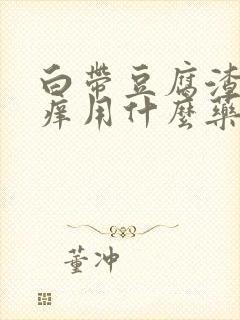 白帶豆腐渣
痒用什麼藥
董冲